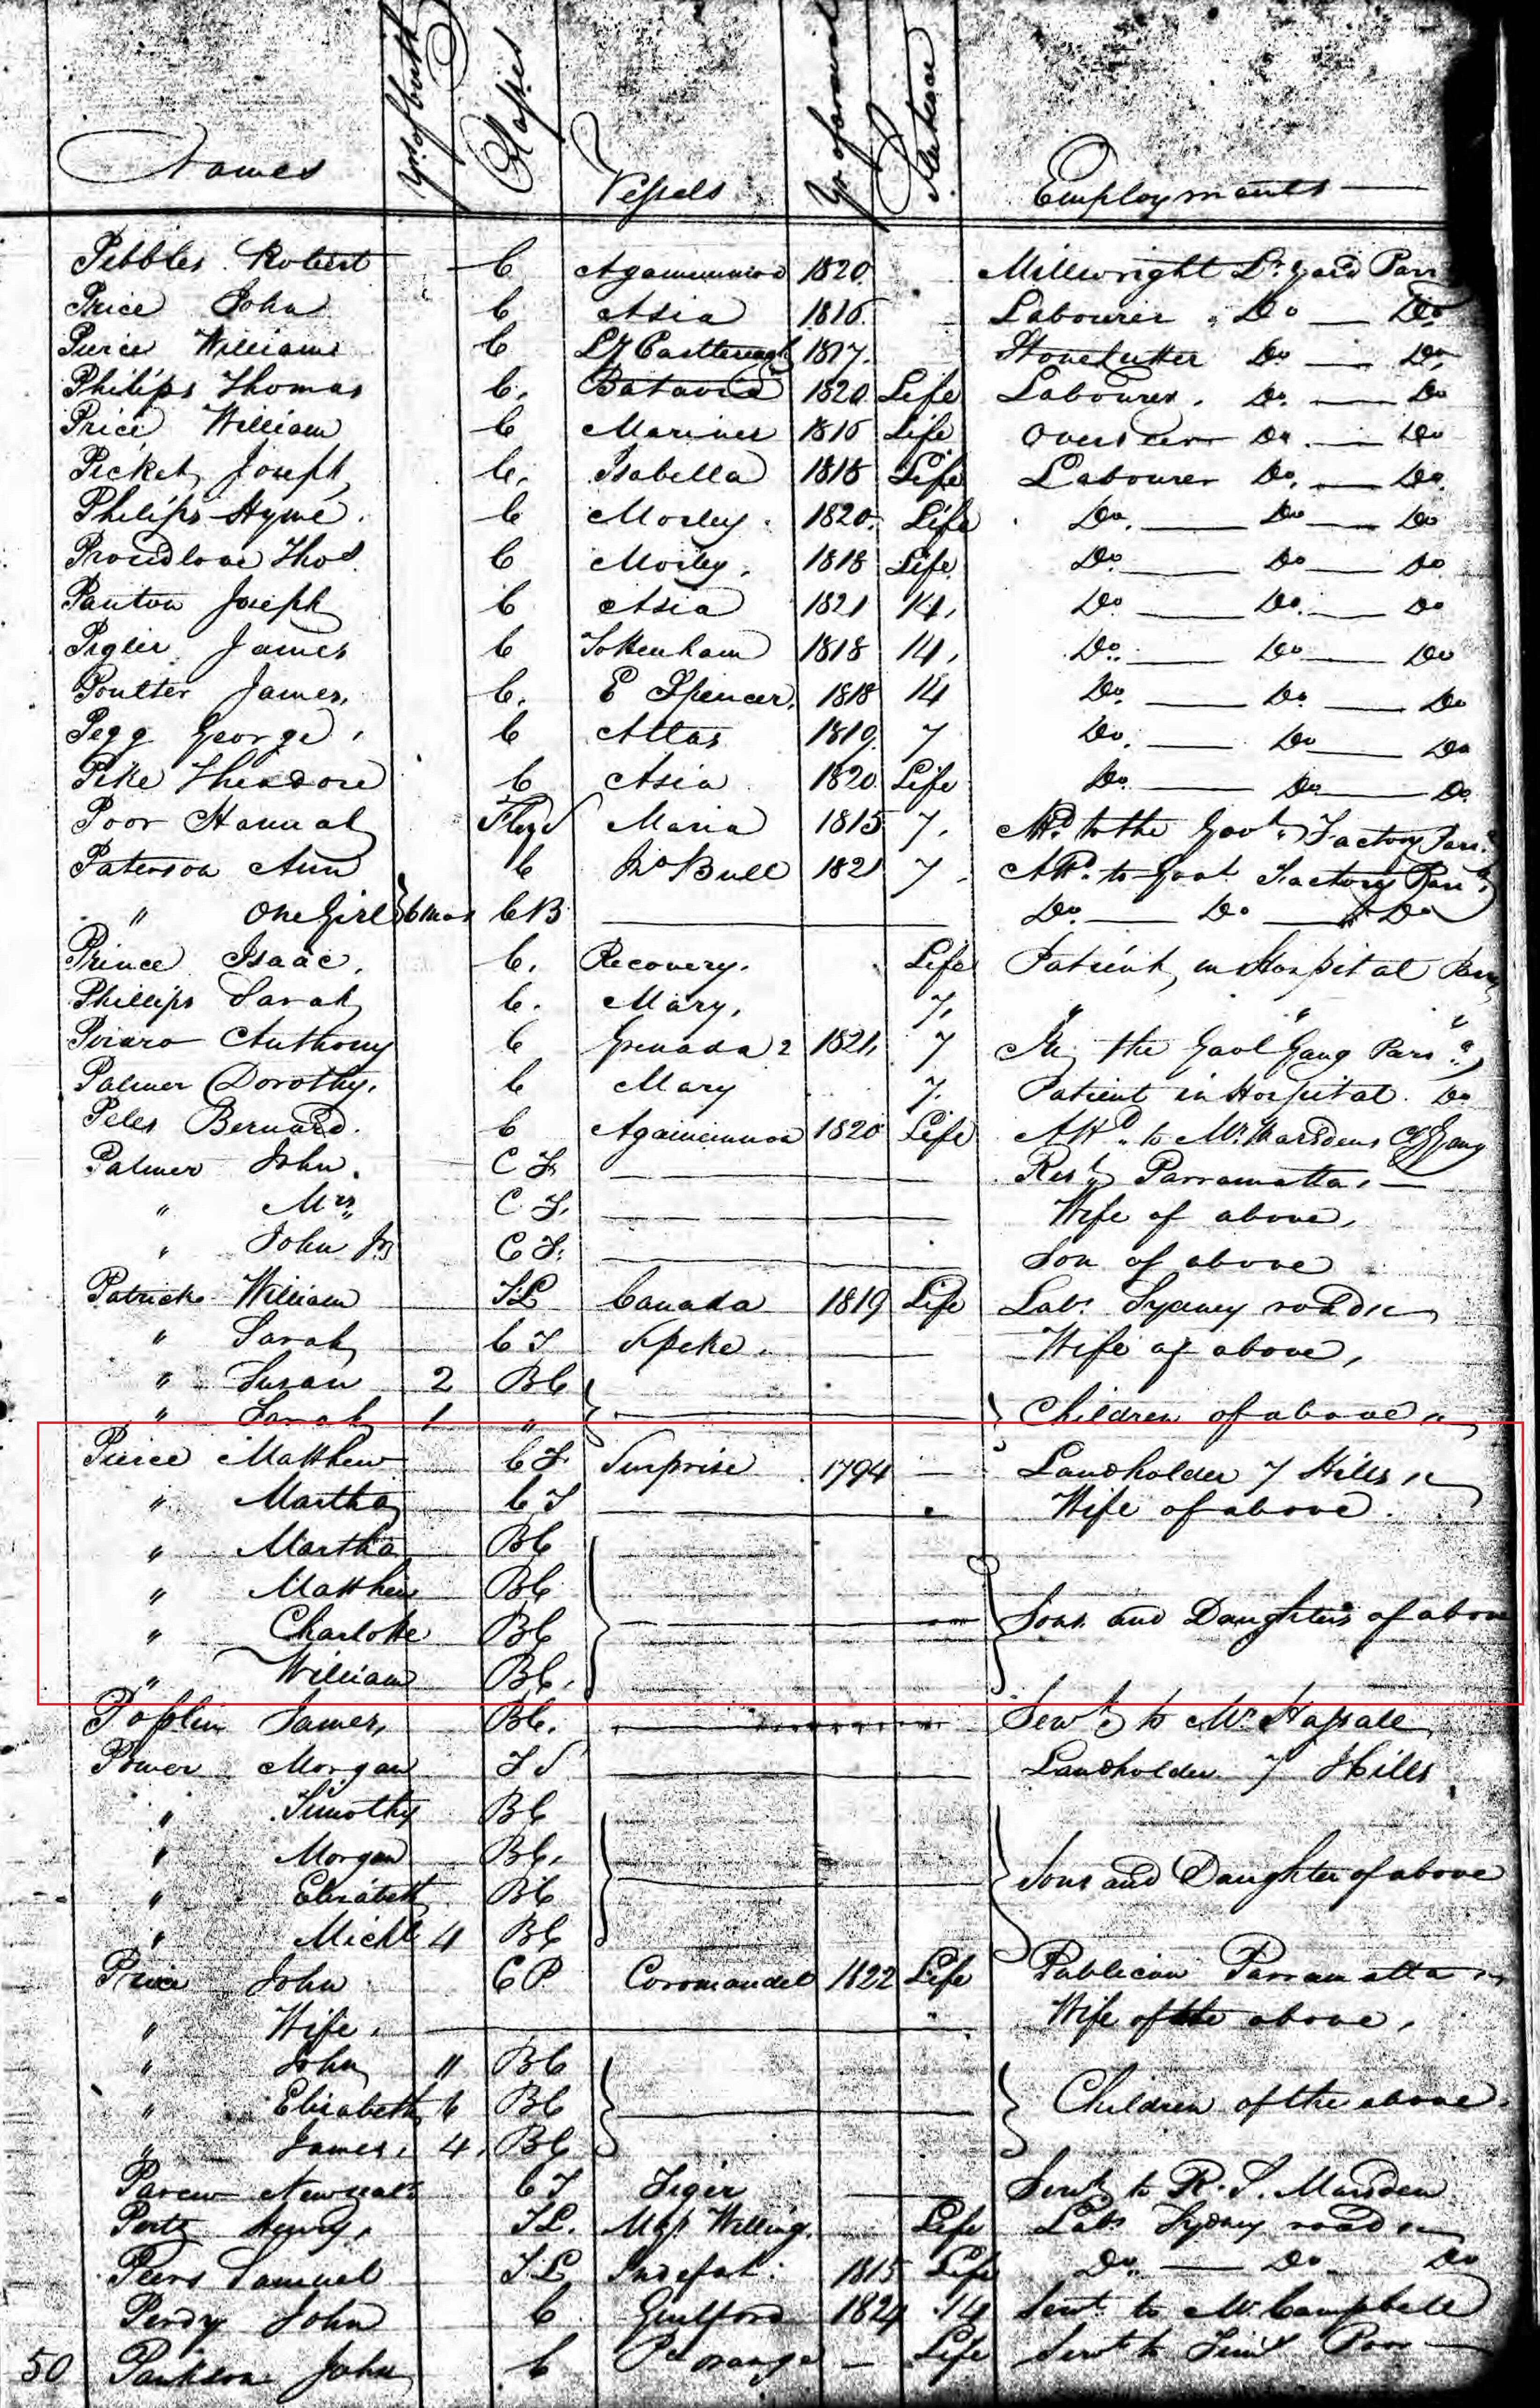 Names Yr of birth Classes Vessels Yr of arrival Sentence Employments
Pebbles Robert C Agamemnon 1820 Millwright Lr Yard Parr
Price John C Asia 1816 Labourer Do Do
Pierce William C Ld Castlereagh 1817 Stonecutter Do Do
Philips Thomas C. Batavia 1820 Life Labourer. Do. Do
Price William C Mariner 1816 Life Overseer Do. Do
Picket Joseph C. Isabella 1818 Life Labourer Do. Do.
Philips Hyme. C Morley. 1820. Life Do. Do Do
Proudlove Thos. C Morley. 1818 Life. Do. Do Do
Panton Joseph C Asia 1821 14. Do Do. Do
Pigler James C Tottenham 1818 14. Do. Do Do
Poulter James. C. E Spencer. 1818 14 Do. Do. Do
Pegg George. C Atlas 1819. 7 Do. Do Do
Pike Theodore C Asia 1820 Life Do. Do Do
Poor Hannah Maria 1815 7. to the Govt. Factory Parr
Paterson Ann C Jno Bull 1821 7. to Govt Factory Parr
" One Girl 6 mos CB Do Do Do
Prince Isaac. C. Recovery. Life Patient in Hospital Parr
Phillips Sarah C. Mary. 7. " " "
Anthony C Grenada 2 1821. 7 In the Gaol Gang Parra
Palmer Dorothy. C Mary 7. Patient in Hospital. Do
Peles Bernard. C Agamemnon 1820 Life to Mr Marsdens Cg Gang
Palmer John. C F. Rest Parramatta.
" Mrs. C F. Wife of above.
" John Jr C F. Son of above
Patrick William TL Canada 1819 Life Labr Sydney road
" Sarah C F Speke. Wife of above,
" Susan 2 BC
" Sarah 1 " Children of above
Pierce Matthew C F. Surprise 1794 Landholder 7 Hills
" Martha C F Wife of above.
" Martha BC
" Matthew BC
" Charlotte BC Sons and Daughters of above
" William BC.
Popplin James, BC. Servt to Mr Hassall
Power Morgan F S Landholder 7 Hills
" Timothy BC
" Morgan BC. Sons and Daughter of above
" Elizabeth BC
" Michl 4 BC
Price John C P Coromandel 1822 Life Publican Parramatta
" Wife. Wife of the above.
" John 11 BC
" Elizabeth 6 BC Children of the above.
" James. 4. BC
C F Tiger Servt to R. S. Marsden
Henry. TL. Willing. Life Labr Sydney road
Peers Samuel TL Indefat. 1815 Life Do. Do Do
Perdy John C Guilford 1824 14 Servt to Mr Campbell
50 John C Pr orange Life Servt to